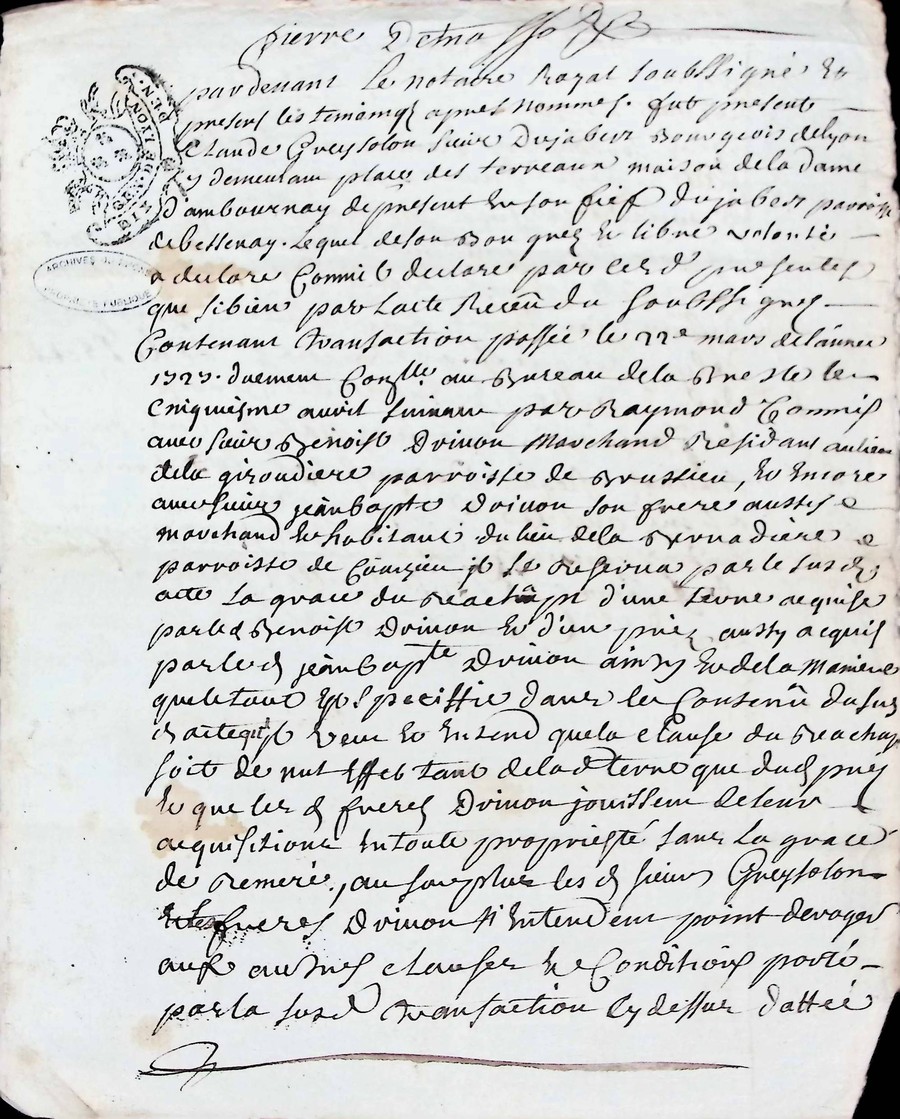 pardevant Le notaire Royal soubssigné et
present les temoings apres nommes. fut present
Claude Greysolon sieur Dujabert Bourgeois delyon
y demeurant place des terreaux maison dela Dame
Dambournay de present en son fief dujabert parroisse
debessenay. Lequel deson Bon grez et libre volonté
a declaré Comme il declare par ces d presentes
que sibien par Lacte Receu du soubssigné
Contenant transaction passée le 22e mars delannee
duement Conllé au Bureau dela Bresle le
cinquiesme avril suivant par Raymond Commis
avec sieur Benoist Drivon Marchand Residant aulieu
dela giroudiere parroisse de Brussieu, et encore
avec sieur jean bapte Drivon son frere aussy
marchand et habitant dulieu dela Bernadiere
parroisse de Courzieu il se reserva par le susd
acte La grace du Reachapt d'une terre acquise
parled Benoist Drivon et d'un prez aussy acquis
parled jean bapte Drivon ainsy et dela Maniere
queletout est speciffié dans le Contenu dusus
d acte veut et entend quela clause du Reachapt
soit de nul effet tant delad terre que dud prez
et que les d freres Drivon jouissent deleur
acquisitions entoute proprieté sans La grace
de Remeré, au surplus les d sieurs Greysolon
freres Drivon n'entendent point deroger
aux autres clauses et Conditions porté
par la susd transaction cy dessus dattée
ARCHIVES DU RHONE
PROPRIETE PUBLIQUE
GEN. DE LYON